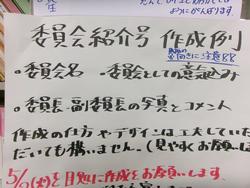 ようにがんばります。
委員会紹介号 作成例
・委員会名 ・委員としての意気込み
・委員長・副委員長の写真とコメント
作成の仕方やデザインは工夫していた
だいても構いません。(見やすくお願いし
5/ (火)を目処に作成をお願いします